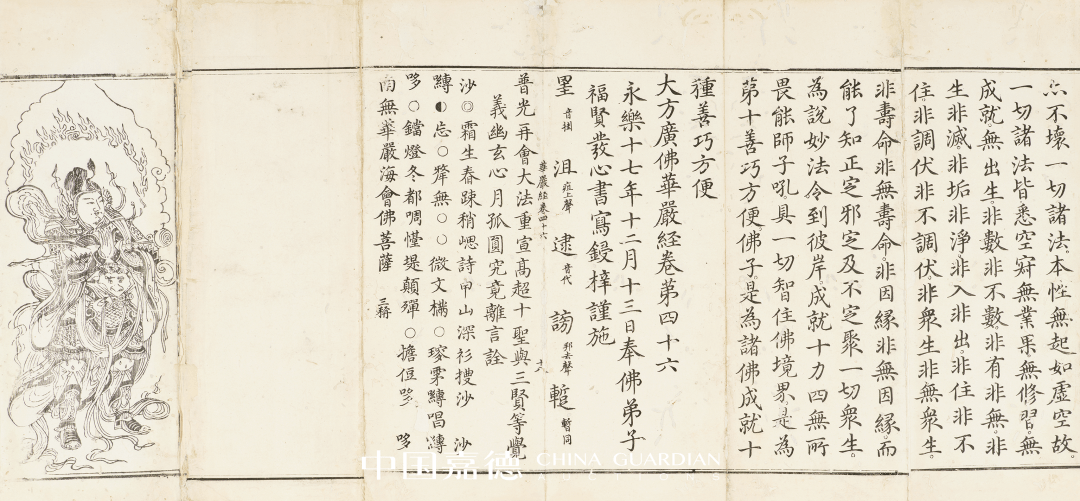 亦不壞一切諸法。本性無起如虛空故。
一切諸法皆悉空寂無業果無修習。無
成就無出生。非數非不數。非有非無。非
生非滅非垢非淨。非入非出。非住非不
住非調伏非不調伏非衆生非無衆生。
非壽命非無壽命。非因緣非無因緣。而
能了知正㝎邪㝎及不㝎聚一切衆生。
為說妙法令到彼岸成就十力四無所
畏能師子吼具一切智住佛境界。是為
苐十善巧方便。佛子。是為諸佛成就十
種善巧方便
大方廣佛華嚴経卷苐四十六
永樂十七年十二月十三日奉佛弟子
福賢發心書寫鋟梓謹施
罣 音掛 沮 疽上聲 逮 音代 謗 邦去聲 蹔 暫同
華嚴経卷四十六
普光再會大法重宣高超十聖與三賢等覺
義幽玄心月孤圓究竟離言詮
沙◎霜生春踈稍崼詩甲山深衫搜沙 沙
囀◐忘○犛無○○微文樠○瑔栗囀唱囀
哆○鐺燈冬都啁憆堤顛殫○擔侸哆 哆
南無華嚴海會佛菩薩 三稱
中国嘉德 CHINA GUARDIAN
AUCTIONS